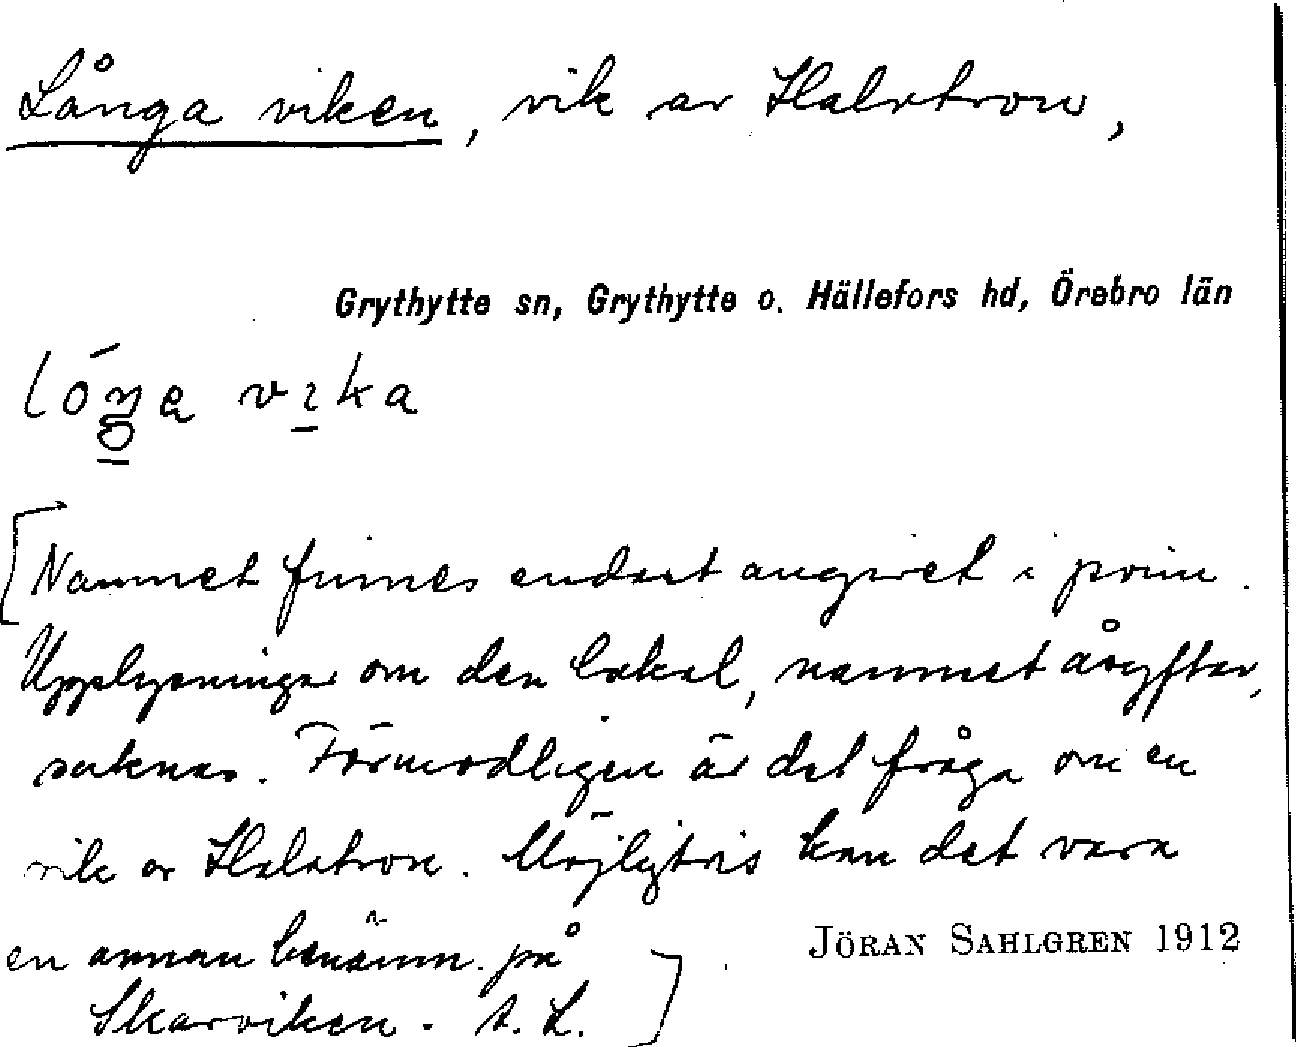 Långa viken, vik av Halvtron,
Grythytte sn, Grythytte o. Hällefors hd, Örebro län
vika
[Namnet finnes endast angivet i prim.
Upplysningar om den lokal, namnet åsyftar,
saknas. Förmodligen är det fråga om en
vik av Halvtron. Möjligtvis kan det vara
en annan benämn. på
JÖRAN SAHLGREN 1912
Skarviken. S. L.]